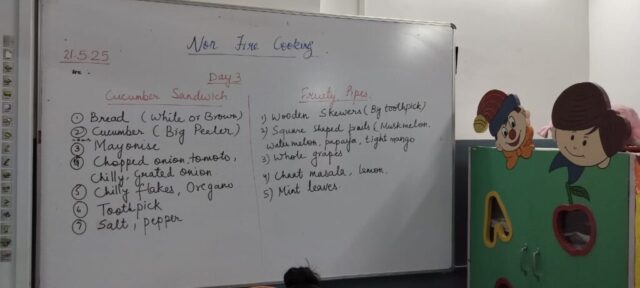 Non Fire Cooking
21.5.25
Day 3
Cucumber Sandwich
① Bread (White or Brown)
② Cucumber (Big Peeler)
③ Mayonise
④ Chopped onion, tomoto,
chilly, grated onion
⑤ Chilly flakes, Oregano
⑥ Toothpick
⑦ Salt, pepper
Fruity Pipes
1) Wooden Skewers (Big toothpick)
2) Square shaped fruits (Muskmelon,
watermelon, papaya, tight mango
3) Whole grapes
4) Chaat masala, lemon.
5) Mint leaves
A